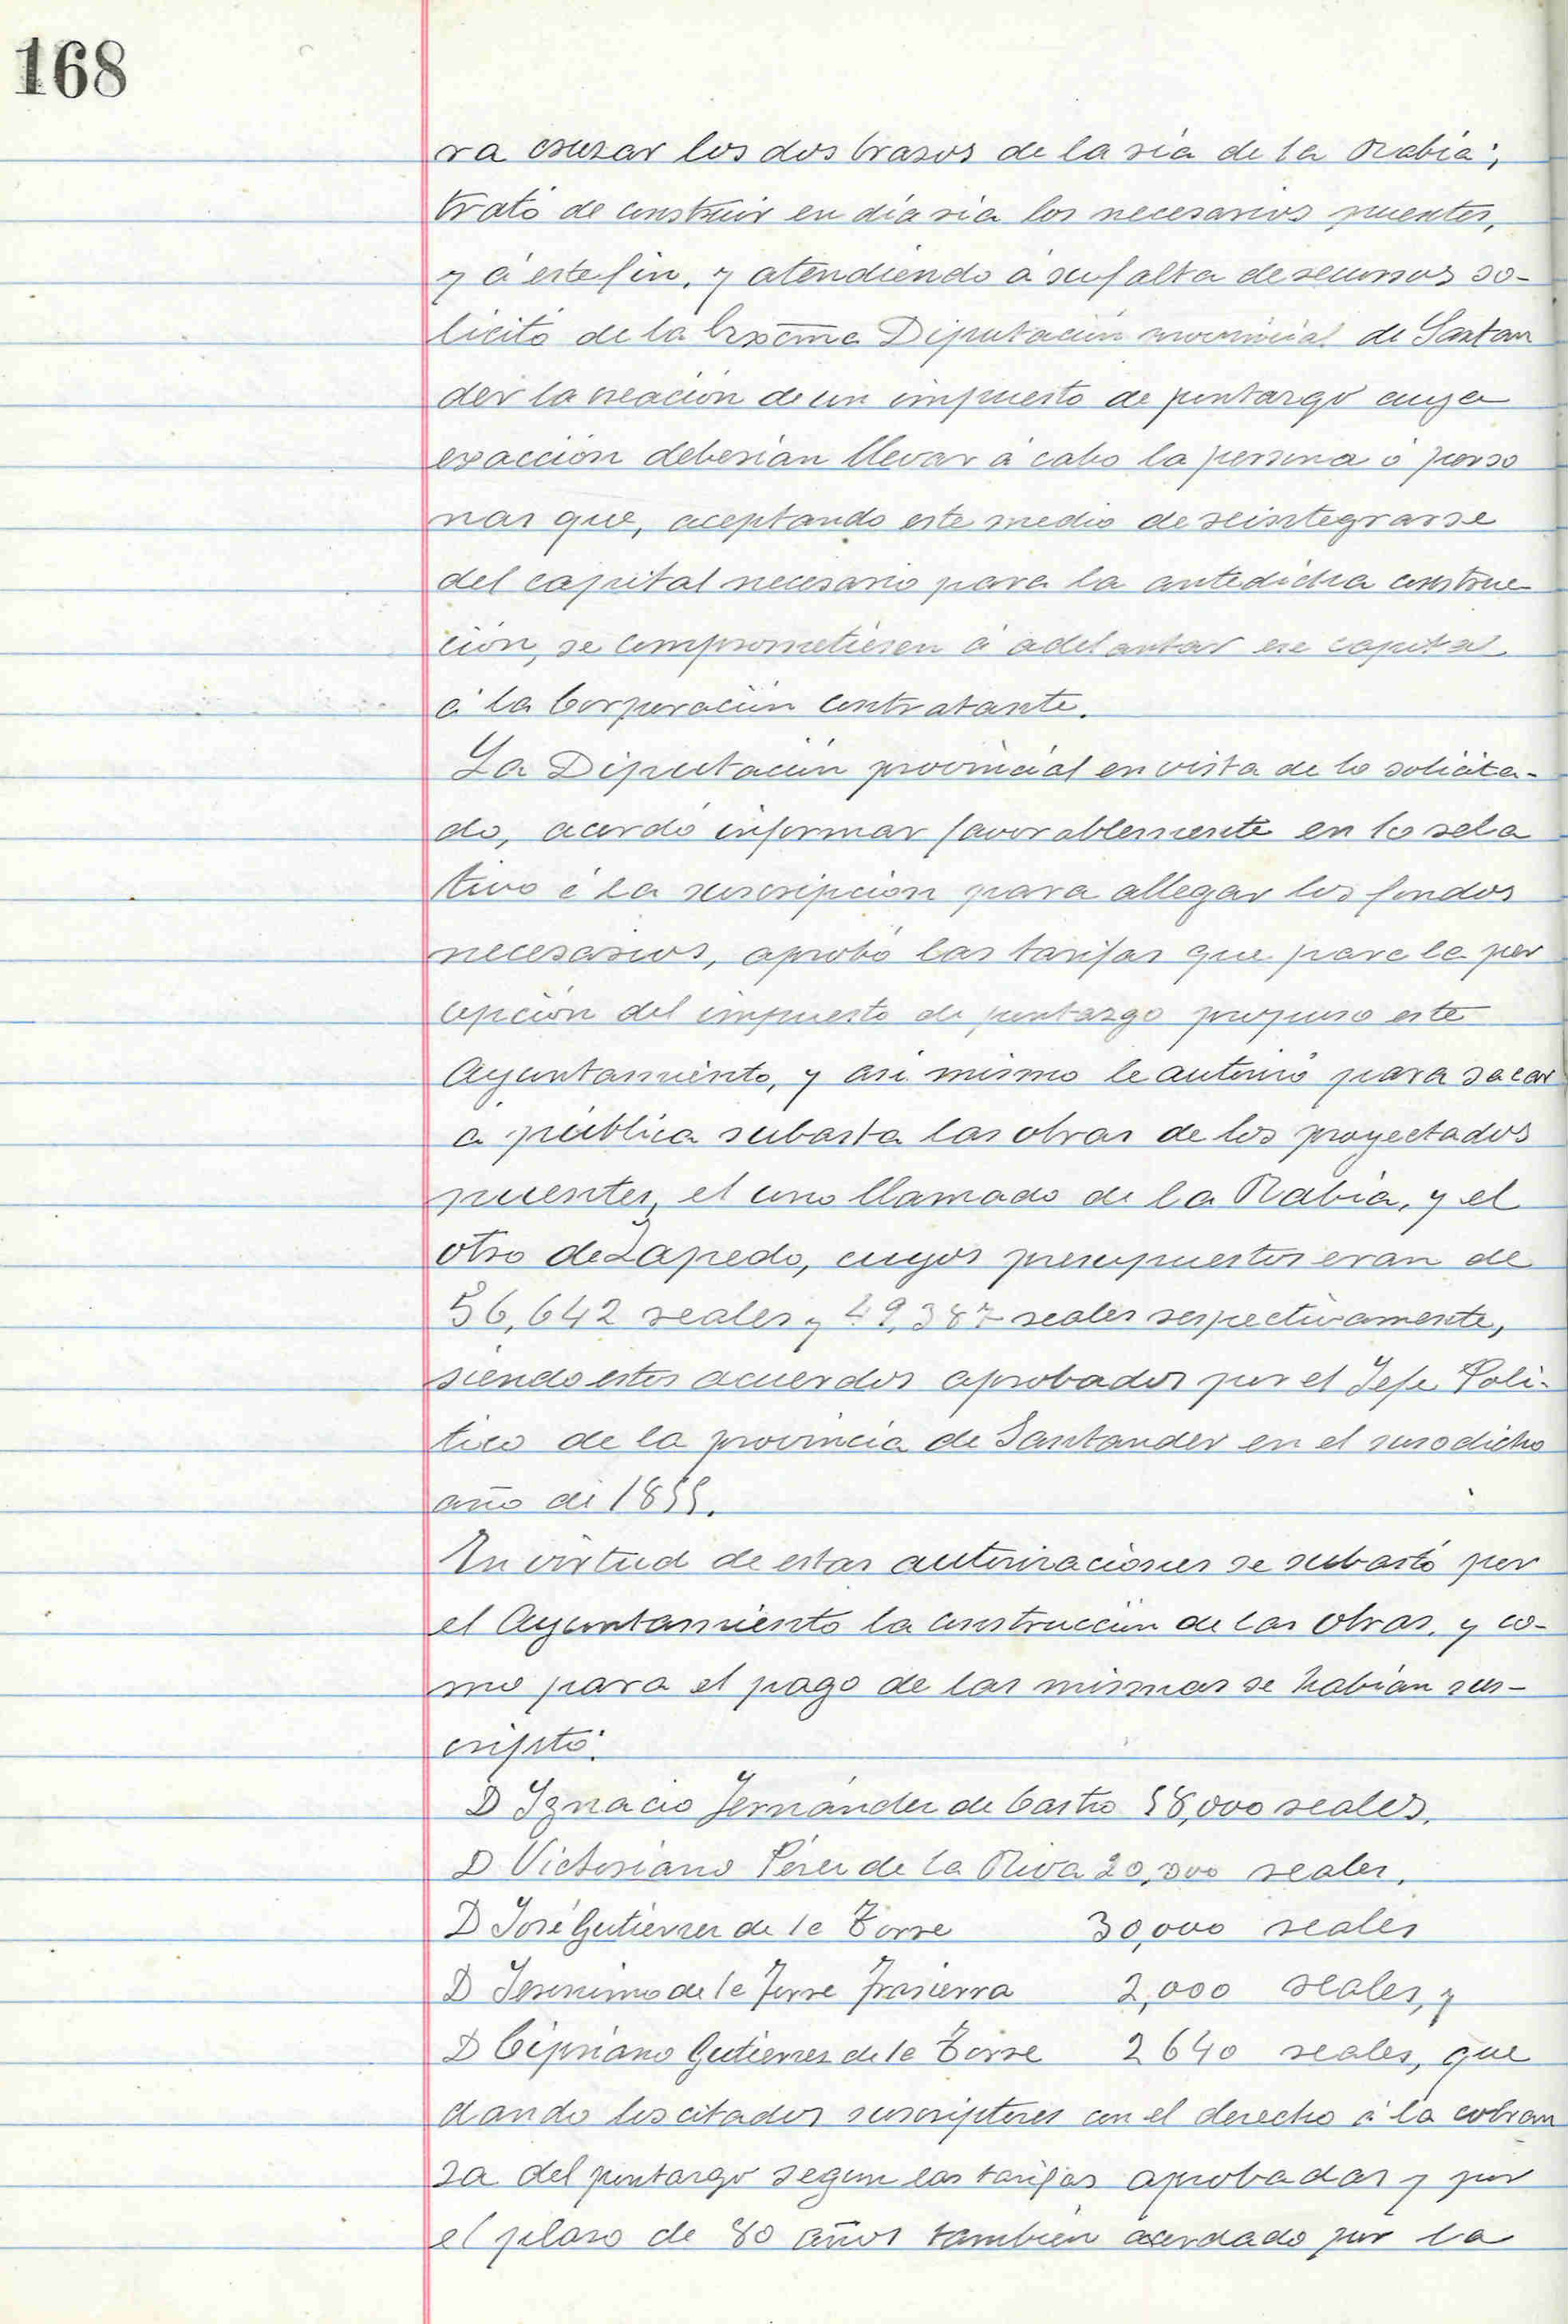 168
ra cruzar los dos brazos de la ría de la Rabia;
trató de construir en día ría los necesarios puentes,
y á este fin, y atendiendo á su falta de recursos so-
licitó de la Excma Diputación provincial de Santan
der la creación de un impuesto de pontazgo cuya
exacción deberían llevar á cabo la persona ó perso
nas que, aceptando este medio de reintegrarse
del capital necesario para la antedicha construc-
ción, se comprometiesen á adelantar ese capital
á la Corporación contratante.
La Diputación provincial en vista de lo solicita-
do, acordó informar favorablemente en lo rela
tivo á la suscripción para allegar los fondos
necesarios, aprobó las tarifas que para la per
cepción del impuesto de pontazgo propuso este
Ayuntamiento, y así mismo le autorizó para sacar
á pública subasta las obras de los proyectados
puentes, el uno llamado de la Rabia, y el
otro de Zapedo, cuyos presupuestos eran de
56,642 reales y 49,387 reales respectivamente,
siendo estos acuerdos aprobados por el Jefe Polí-
tico de la provincia de Santander en el susodicho
año de 1855.
En virtud de estas autorizaciones se subastó por
el Ayuntamiento la construcción de las obras, y co-
mo para el pago de las mismas se habían sus-
cripto:
D Ignacio Fernández de Castro 58,000 reales.
D Victoriano Pérez de la Riva 20,000 reales.
D José Gutiérrez de la Torre 30,000 reales
D Jerónimo de la Torre Trasierra 2,000 reales, y
D Cipriano Gutierrez de la Torre 2640 reales, que
dando los citados suscriptores con el derecho á la cobran
za del pontazgo segun las tarifas aprobadas y por
el plazo de 80 años también acordado por la